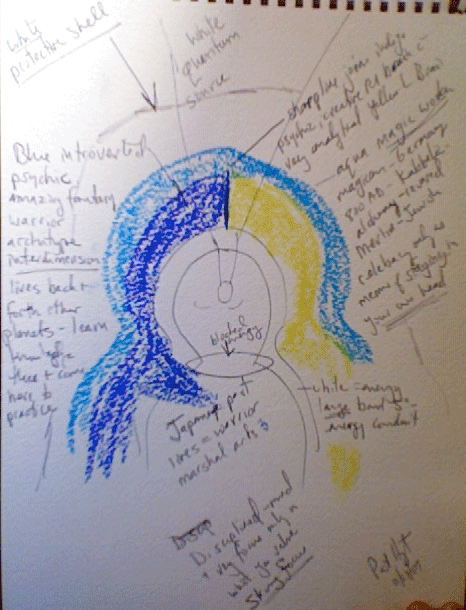 white
protective shell
white
quantum
source
sharp line join indigo
psychic, creative Rt brain c
very analytical yellow L Brain
aqua magic worker
magician - Germany
800 AD - Kabbala -
alchemy - revered
Mentor - Jewish
celebacy only as
means of staying in
your own head
Blue introverted
psychic
amazing fantasy
warrior
archetype
interdimension
lives back +
forth other
planets - learn
knowledge
there + come
here to
practice
blocked
energy
white = energy
large band
energy conduit
Japanese past
lives = warrior
marshal arts
Disciplined mind
+ very focus only in
what you value
Strong focus